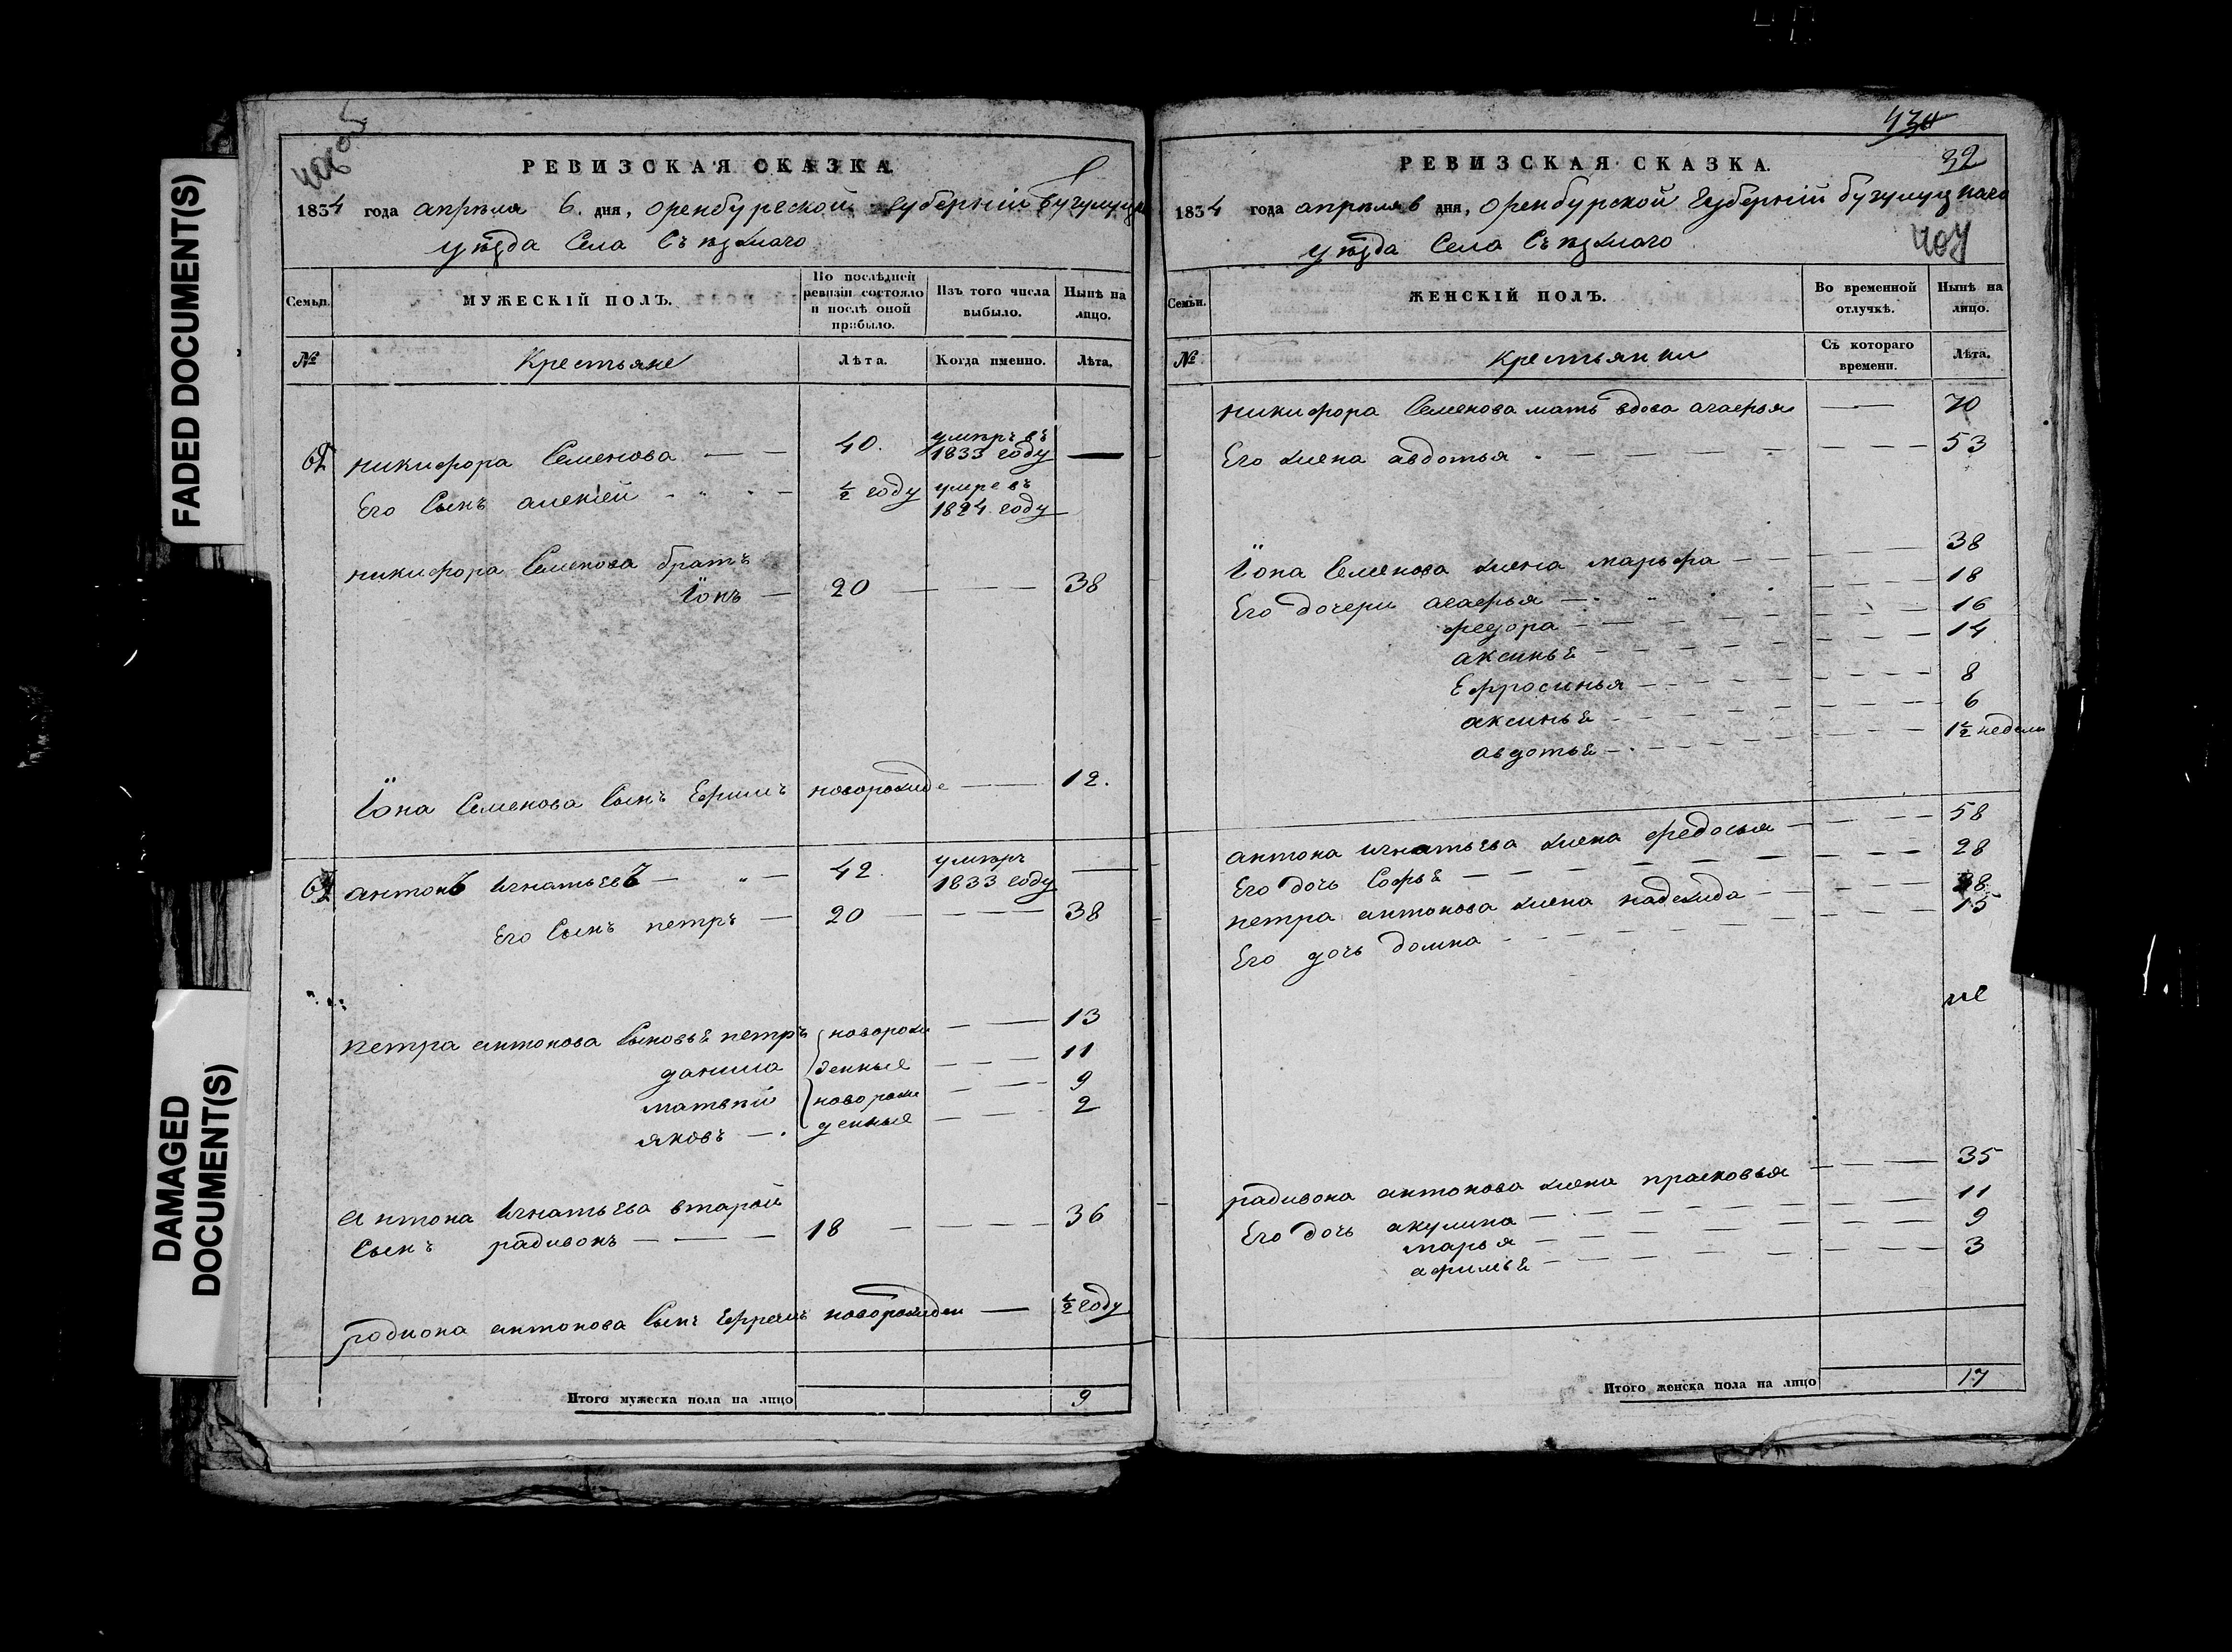 FADED DOCUMENT(S)
DAMAGED
DOCUMENT(S)
РЕВИЗСКАЯ СКАЗКА.
1834 года апреля 6. дня, Оренбургской губернiи
уѣзда Села Съѣзжаго
Семьи.
МУЖЕСКІЙ ПОЛЪ.
По послѣдней
ревизіи состояло
и послѣ оной
прибыло.
Изъ того числа
выбыло.
Нынѣ на
лицо.
№
Крестьяне
Лѣта.
Когда именно.
Лѣта.
никифора Семенова 40. умпръ въ
1833 году
Его Сынъ алекiей ½ году умре въ
1824 году
никифора Семенова братъ
Iонъ 20 38
Iона Семенова Сынъ Ефимъ новорожде 12.
антонъ игнатьевъ 42. умпръ
1833 году
Его Сынъ петръ 20 38
петра антонова Сыновьѣ петръ новорож 13
данила денные 11
матвѣй новорож 9
яковъ денные 2
Антона игнатьева вторай
Сынъ радивонъ 18 36
родиона антонова Сынъ Ефремъ новорожден ½ году
Итого мужеска пола на лицо 9
434
32
РЕВИЗСКАЯ СКАЗКА.
1834 года апреля 6 дня, Оренбурской Губернiй бугулуцкаго
уѣзда Села Съѣзжаго
407
Семьи.
ЖЕНСКІЙ ПОЛЪ.
Во временной
отлучкѣ.
Нынѣ на
лицо.
№
крестьянки
Съ котораго
времени.
Лѣта.
никифора Семенова мать вдова агафья 70
Его жена авдотья 53
Iона Семенова жена марьфа 38
Его дочери агафья 18
федора 16
аксиньѣ 14
Ефросинья 8
аксиньѣ 6
авдотьѣ 1½ недели
антона игнатьева жена федосья 58
Его дочь Софьѣ 28
петра антонова жена надежда 38
Его дочь домна 15
радивона антонова жена прасковья 35
Его дочь акулина 11
марья 9
афимьѣ 3
Итого женска пола на лицо 17